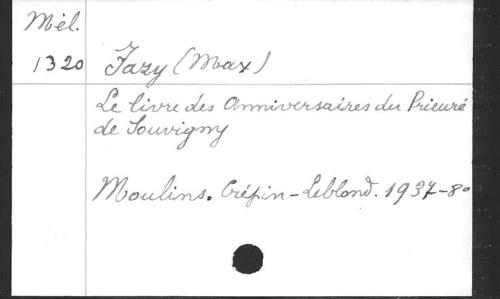 Mél.
1320 Fazy (Max)
Le livre des Anniversaires du Prieuré
de Souvigny
Moulins. Crépin-Leblond. 1937-8º